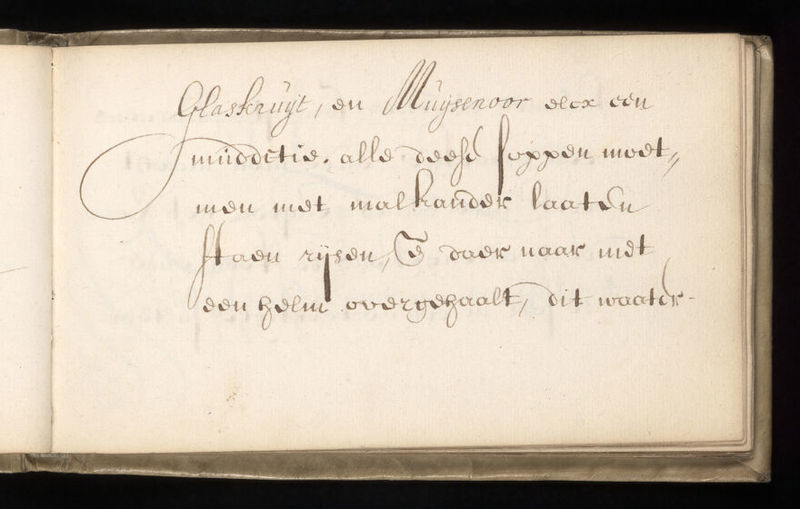 Glaskruyt, en Muijsenoor elcx een
muddetie. alle deese soppen moet„
men met malkander laaten
staen rijsen, & daer naar met
een helm overgehaalt, dit waater-